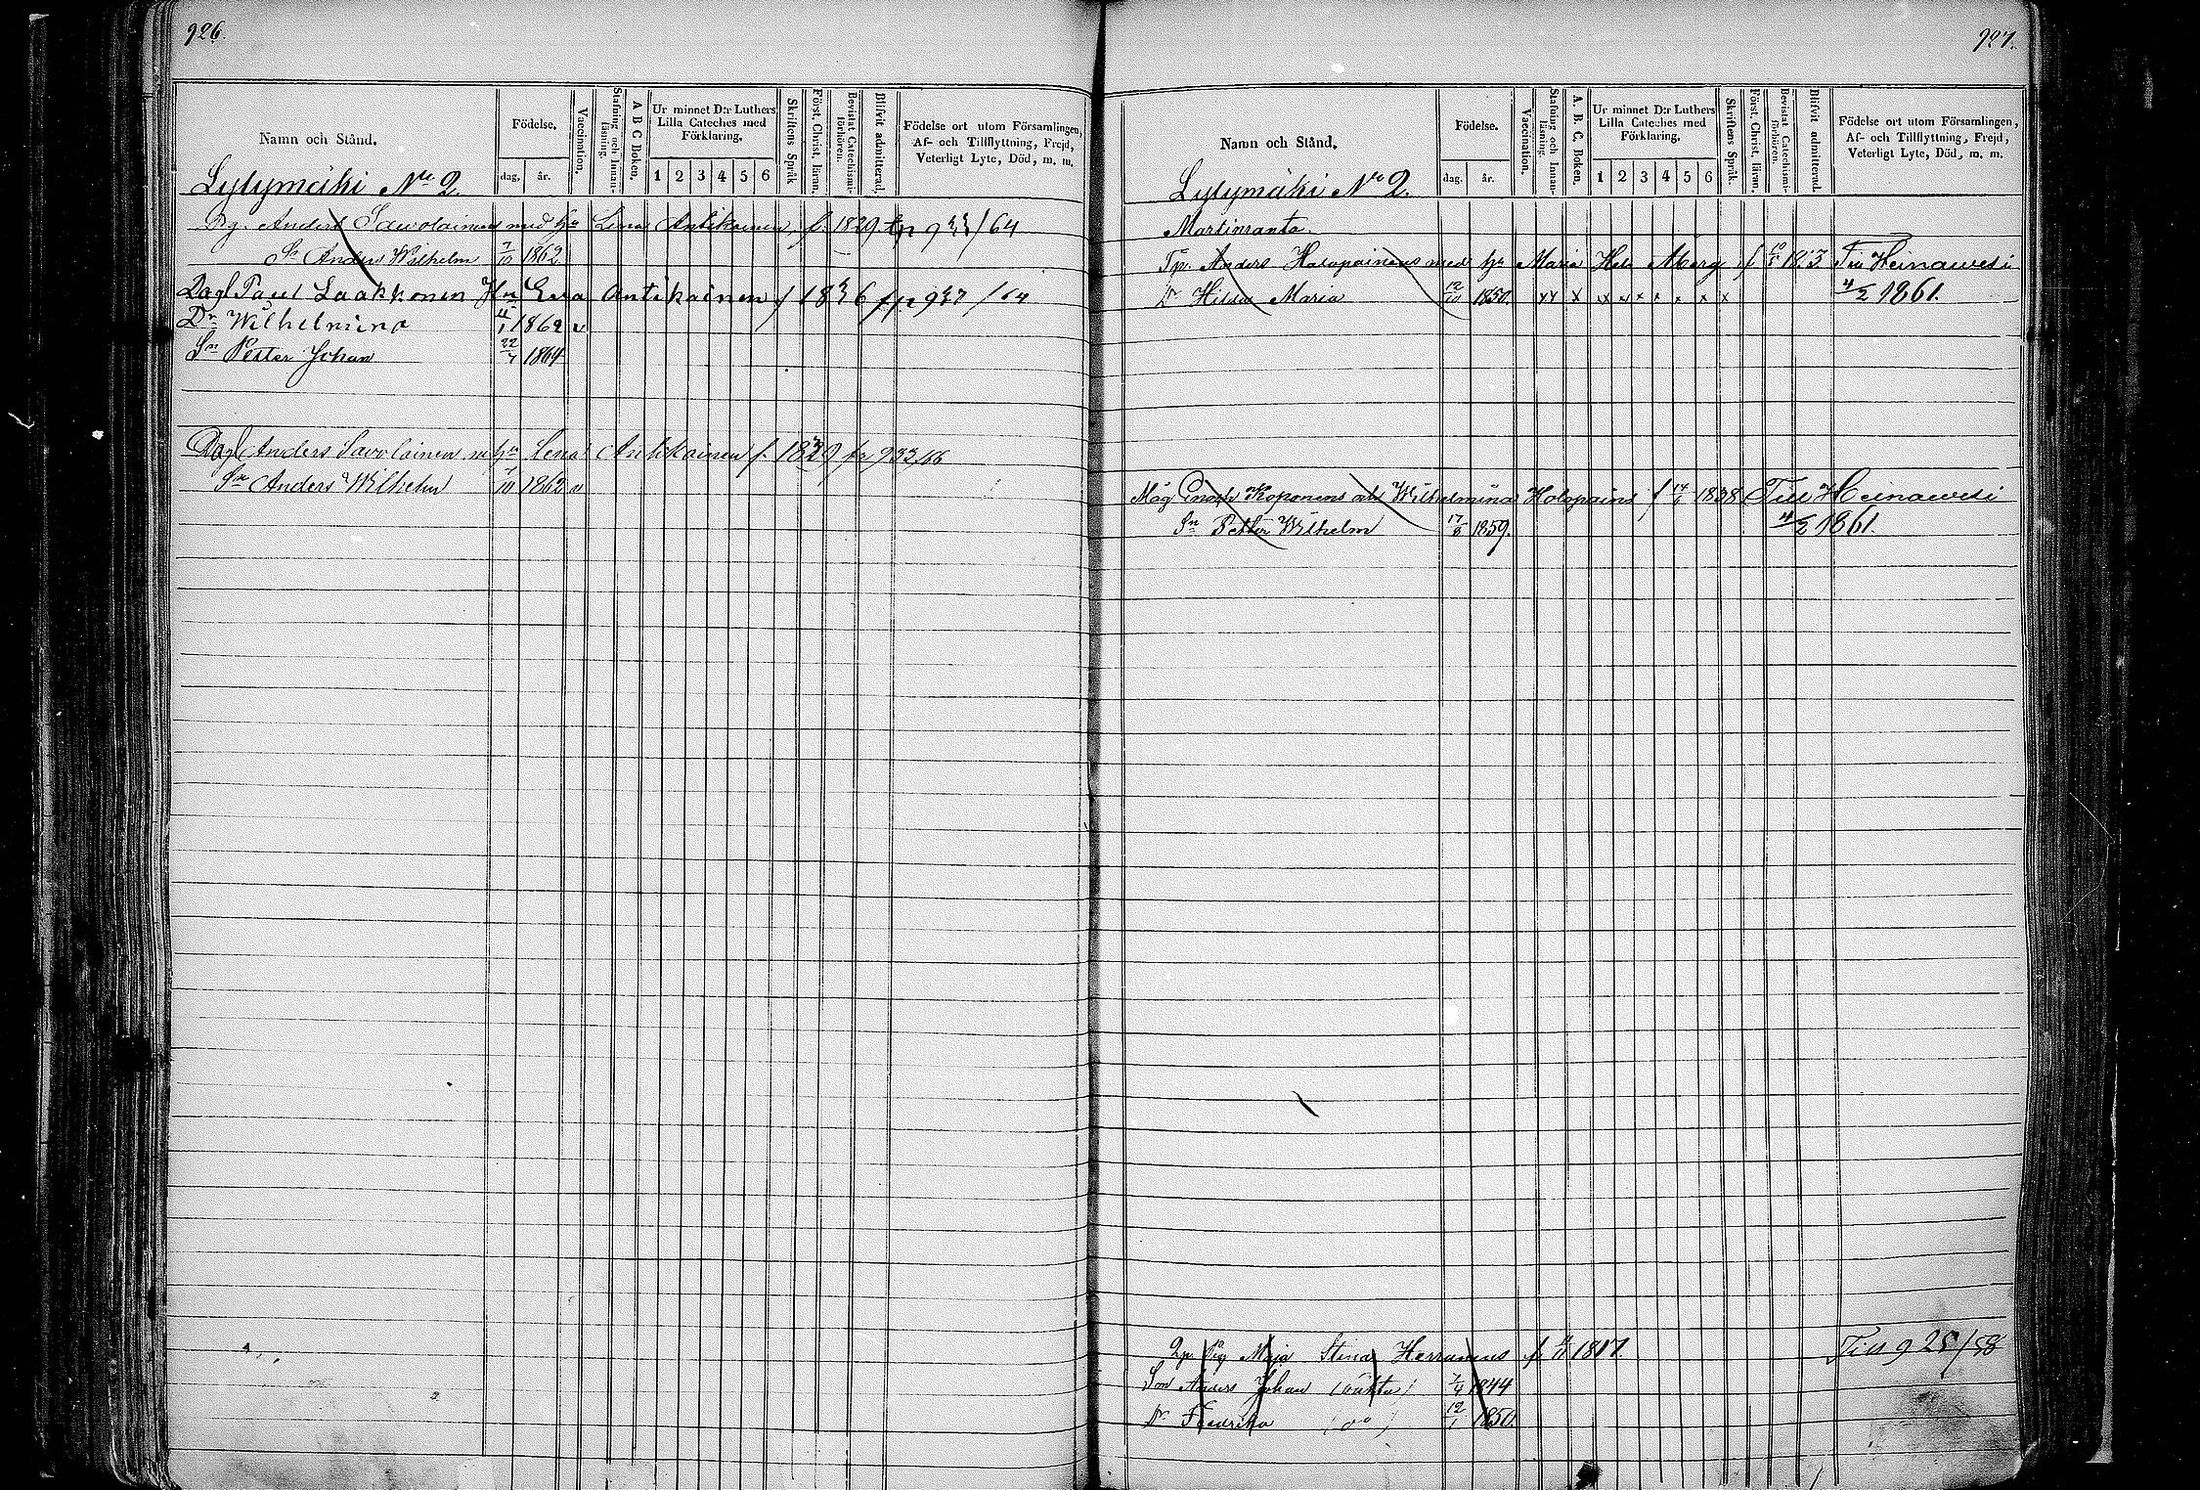 926.
Namn och Stånd.
Födelse.
dag. år.
Vaccination.
Stafning och Innanläsning.
A B C Boken.
Ur minnet D:r Luthers Lilla Cateches med Förklaring.
1 2 3 4 5 6
Skriftens Språk
Först. Christ. läran.
Bevistat Catechismiförhören.
Blifvit admitterad.
Födelse ort utom Församlingen, Af- och Tillflyttning, Frejd, Veterligt Lyte, Död, m. m.
Lylymäki No 2.
Dg. Anders Sawolainen med hu Lena Antikainen, f. 1829 fr 933/64
Sn Anders Wilhelm 7/10 1862
Dagl Paul Laakkonen Hu Eva Antikainen f 1836 fr. 937/64
Dr Wilhelmina 4/1 1862 v
Sn Petter Johan 22/7 1864
Dagl Anders Savolainen m hu Lena Antikainen f. 1829 fr 933/66
Sn Anders Wilhelm 7/10 1862 v
927.
Namn och Stånd.
Födelse.
dag. år.
Vaccination.
Stafning och Innanläsning
A. B. C. Boken.
Ur minnet D:r Luthers Lilla Cateches med Förklaring.
1 2 3 4 5 6
Skriftens Språk.
Först. Christ. läran.
Bevistat Catechismiförhören.
Blifvit admitterad
Födelse ort utom Församlingen, Af- och Tillflyttning, Frejd, Veterligt Lyte, Död, m. m.
Lylymäki No 2.
Martinranta.
Tp. Anders Holopainens med hu Maria Hel. Åberg f Till Heinawesi
Dr Hilda Maria 12/10 1850. xx x x x x x x x x 4/2 1861.
Måg Enoch Koponens Wilhelmina Holopains f 14/6 1838 Till Heinawesi
Sn Petter Wilhelm 17/8 1859. 4/2 1861.
Maja Stina Herranens f. 1817. Till 925/58
Son Anders Johan (oäkta) 7/4 1844
Dr Fredrika (do) 12/1 1850.